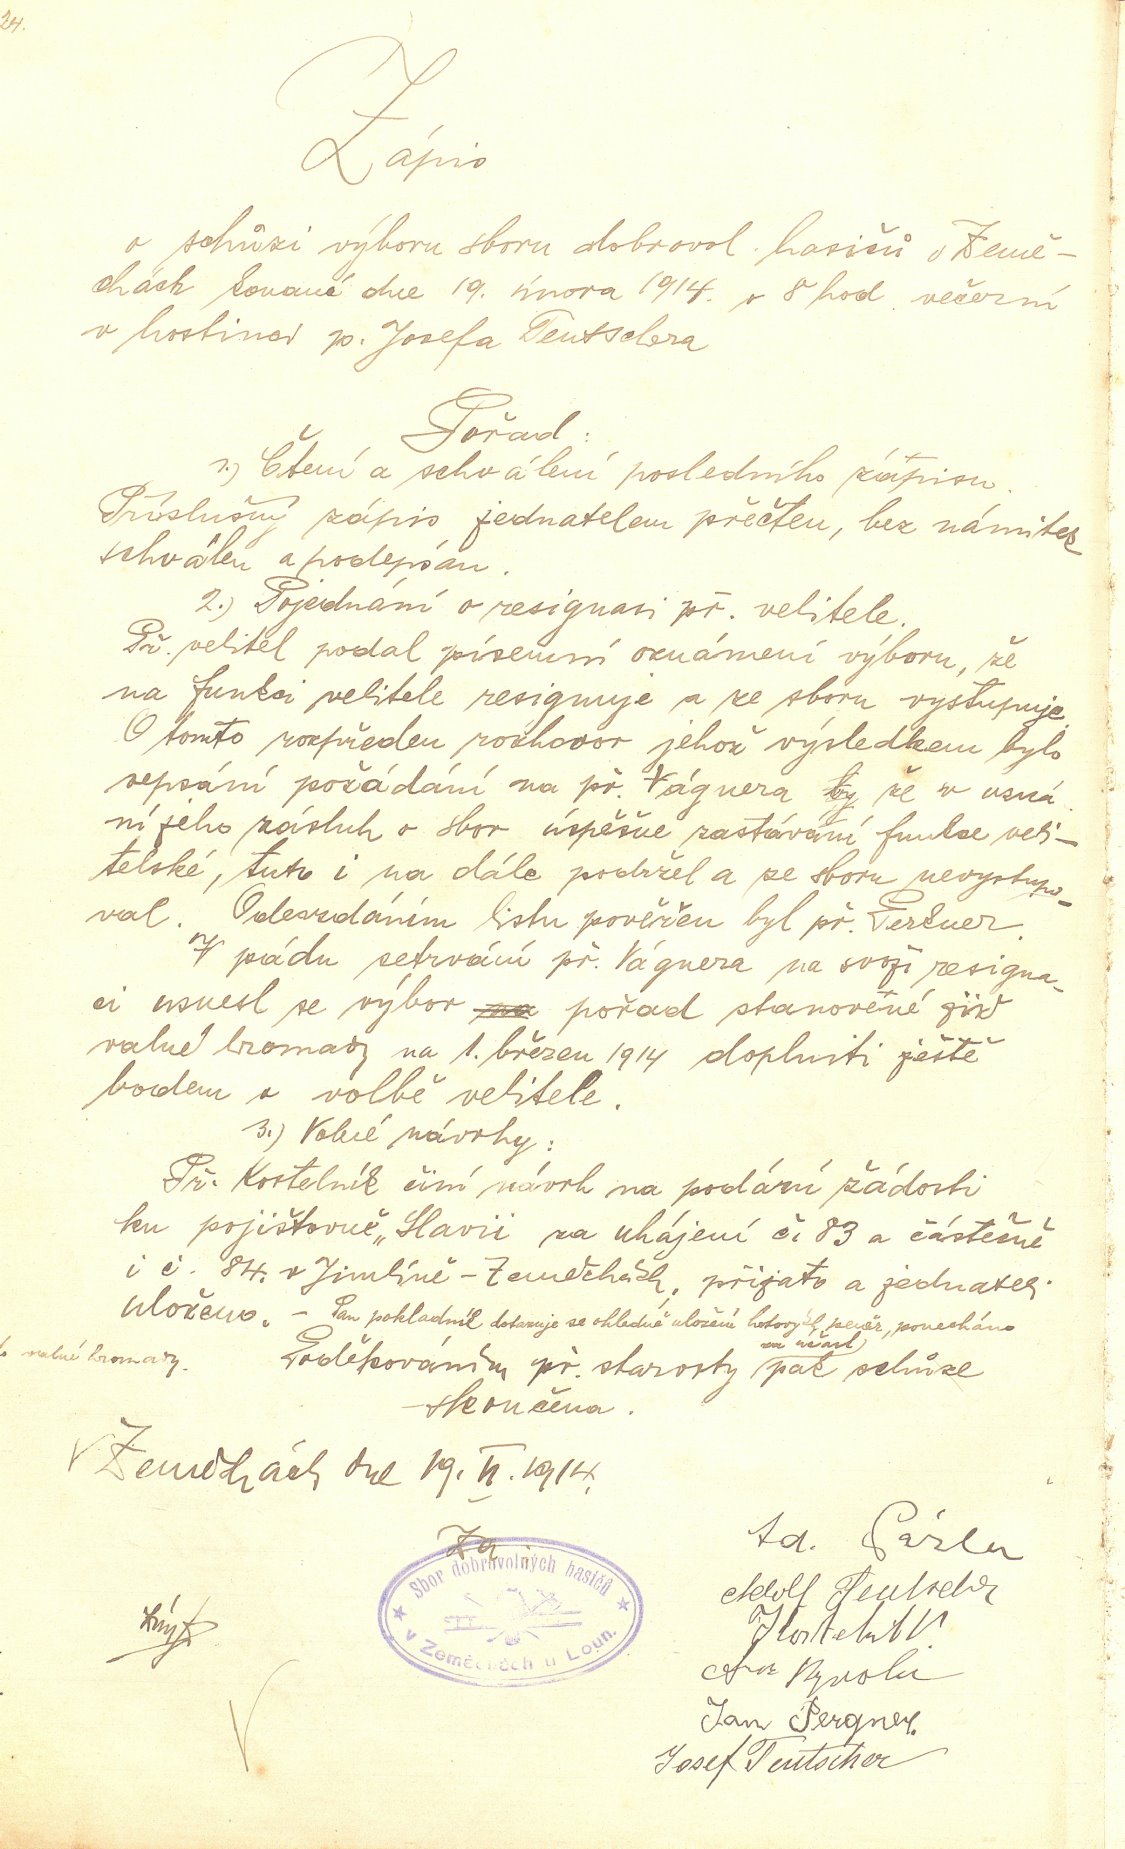 24.
Zápis
o schůzi výboru sboru dobrovol. hasičů v Země-
chách konané dne 19. února 1914. v 8 hod. večerní
v hostinci p. Josefa Teutschera
Pořad:
1.) Čtení a schválení posledního zápisu.
Příslušný zápis jednatelem přečten, bez námitek
schválen a podepsán.
2.) Pojednání o resignasi př. velitele.
Př. velitel podal písemní oznámení výboru, že
na funkci velitele resignuje a ze sboru vystupuje.
O tomto rozpředen rozhovor jehož výsledkem bylo
sepsání požádání na př. Vágnera by že v uzná
ní jeho zásluh o sbor úspěšne zastávání funkce veli-
telské, tuto i na dále podržel a ze sboru nevystupo-
val. Odevzdáním listu pověřen byl př. Perkner.
V pádu setrvání př. Vágnera na svoji resigna-
ci usnesl se výbor na pořad stanovené již
valné hromady na 1. březen 1914 doplniti ještě
bodem o volbě velitele.
3.) Volné návrhy:
Př. Kostelník činí návrh na podání žádosti
ku pojišťovně „Slavii za uhájení č. 83 a částečně
i č. 84. v Jimlíně - Zeměchách, přijato a jednateli
uloženo. - Pan pokladník dotazuje se ohledně uložení hotových peněz, ponecháno
do valné hromady.
za účast
Poděkováním př. starosty pak schůze
skončena.
V Zeměchách dne 19. II. 1914.
Za
Sbor dobrovolných hasičů
v Zeměchách u Loun.
Ad.
Adolf Teutscher
J Kostelník
Jan Pergner.
Josef Teutscher